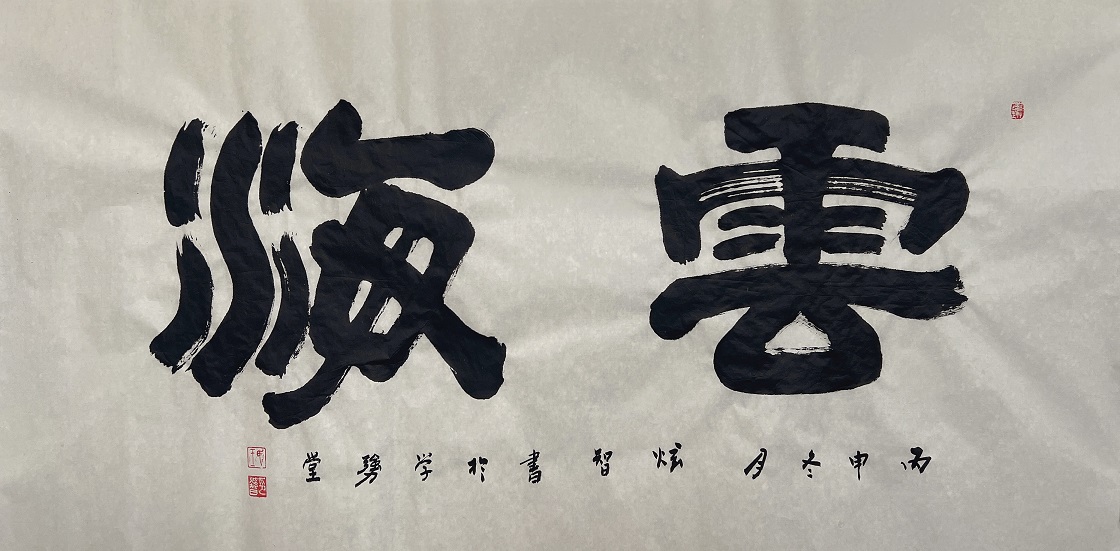 雲海
丙申冬月炫智書於学勇堂